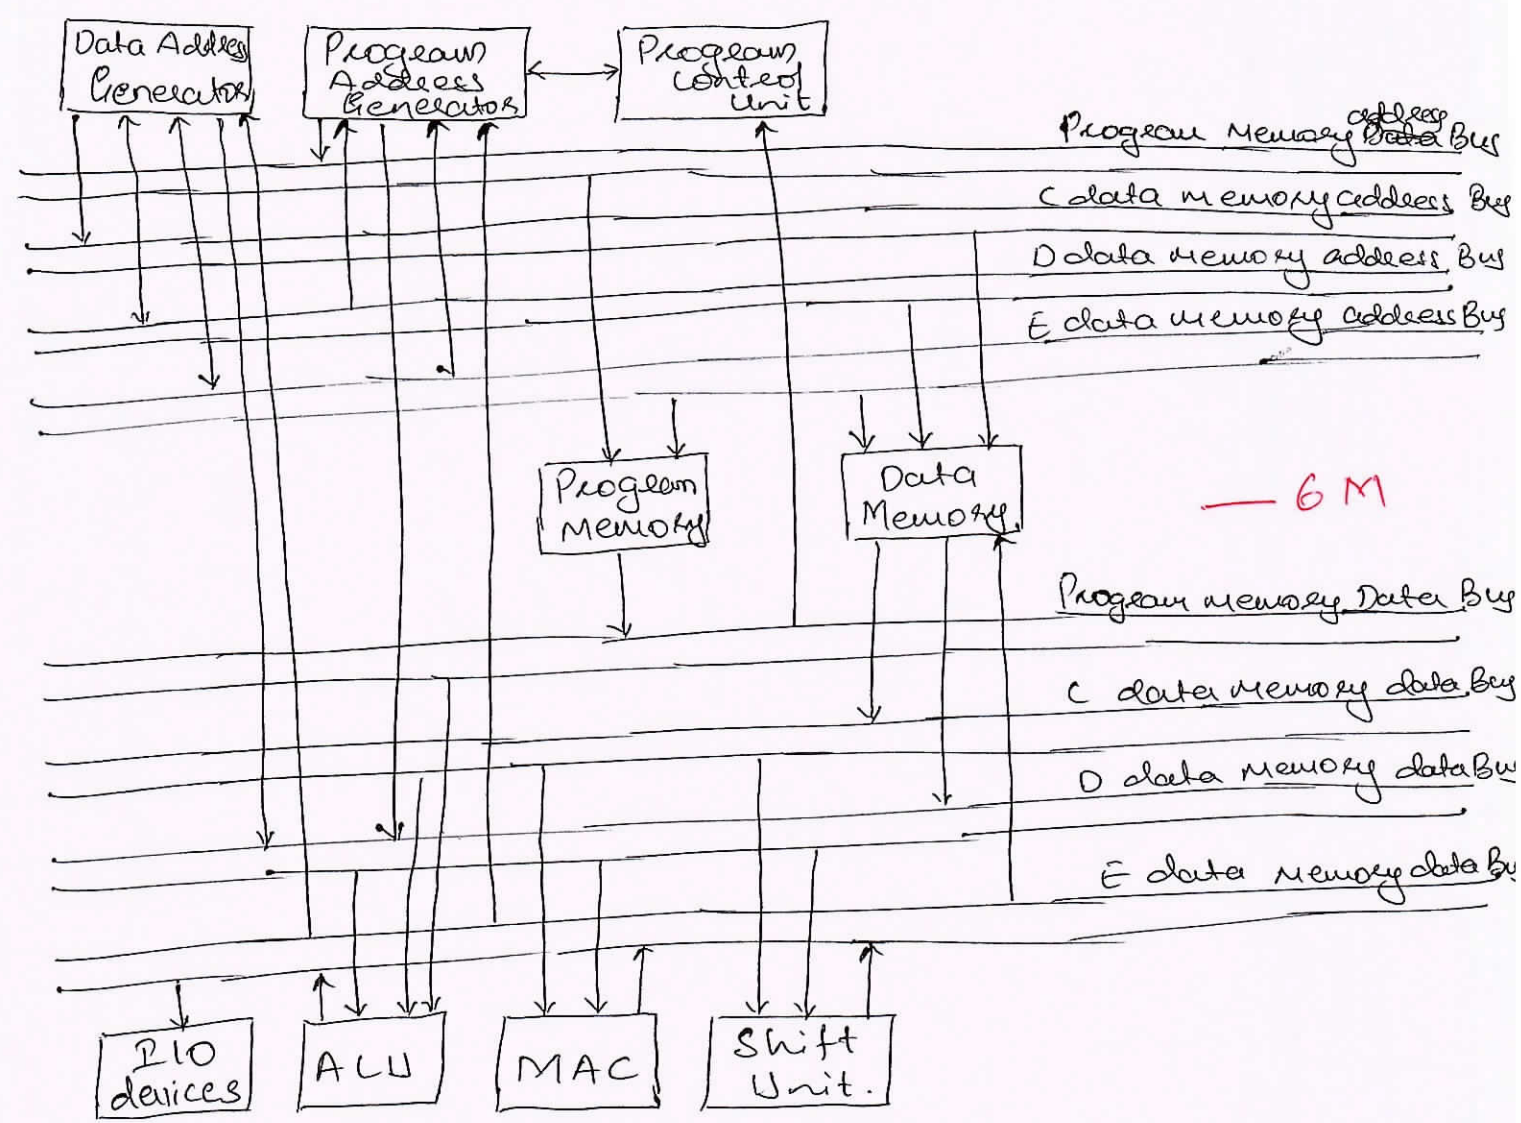 Data Address
Generator
Program
Address
Generator
Program
Control
Unit
address
Program Memory Data Bus
C data memory address Bus
D data memory address Bus
E data memory address Bus
Program
Memory
Data
Memory
— 6 M
Program memory Data Bus
C data memory data Bus
D data memory data Bu
E data memory data Bu
I/O
devices
ALU
MAC
Shift
Unit.